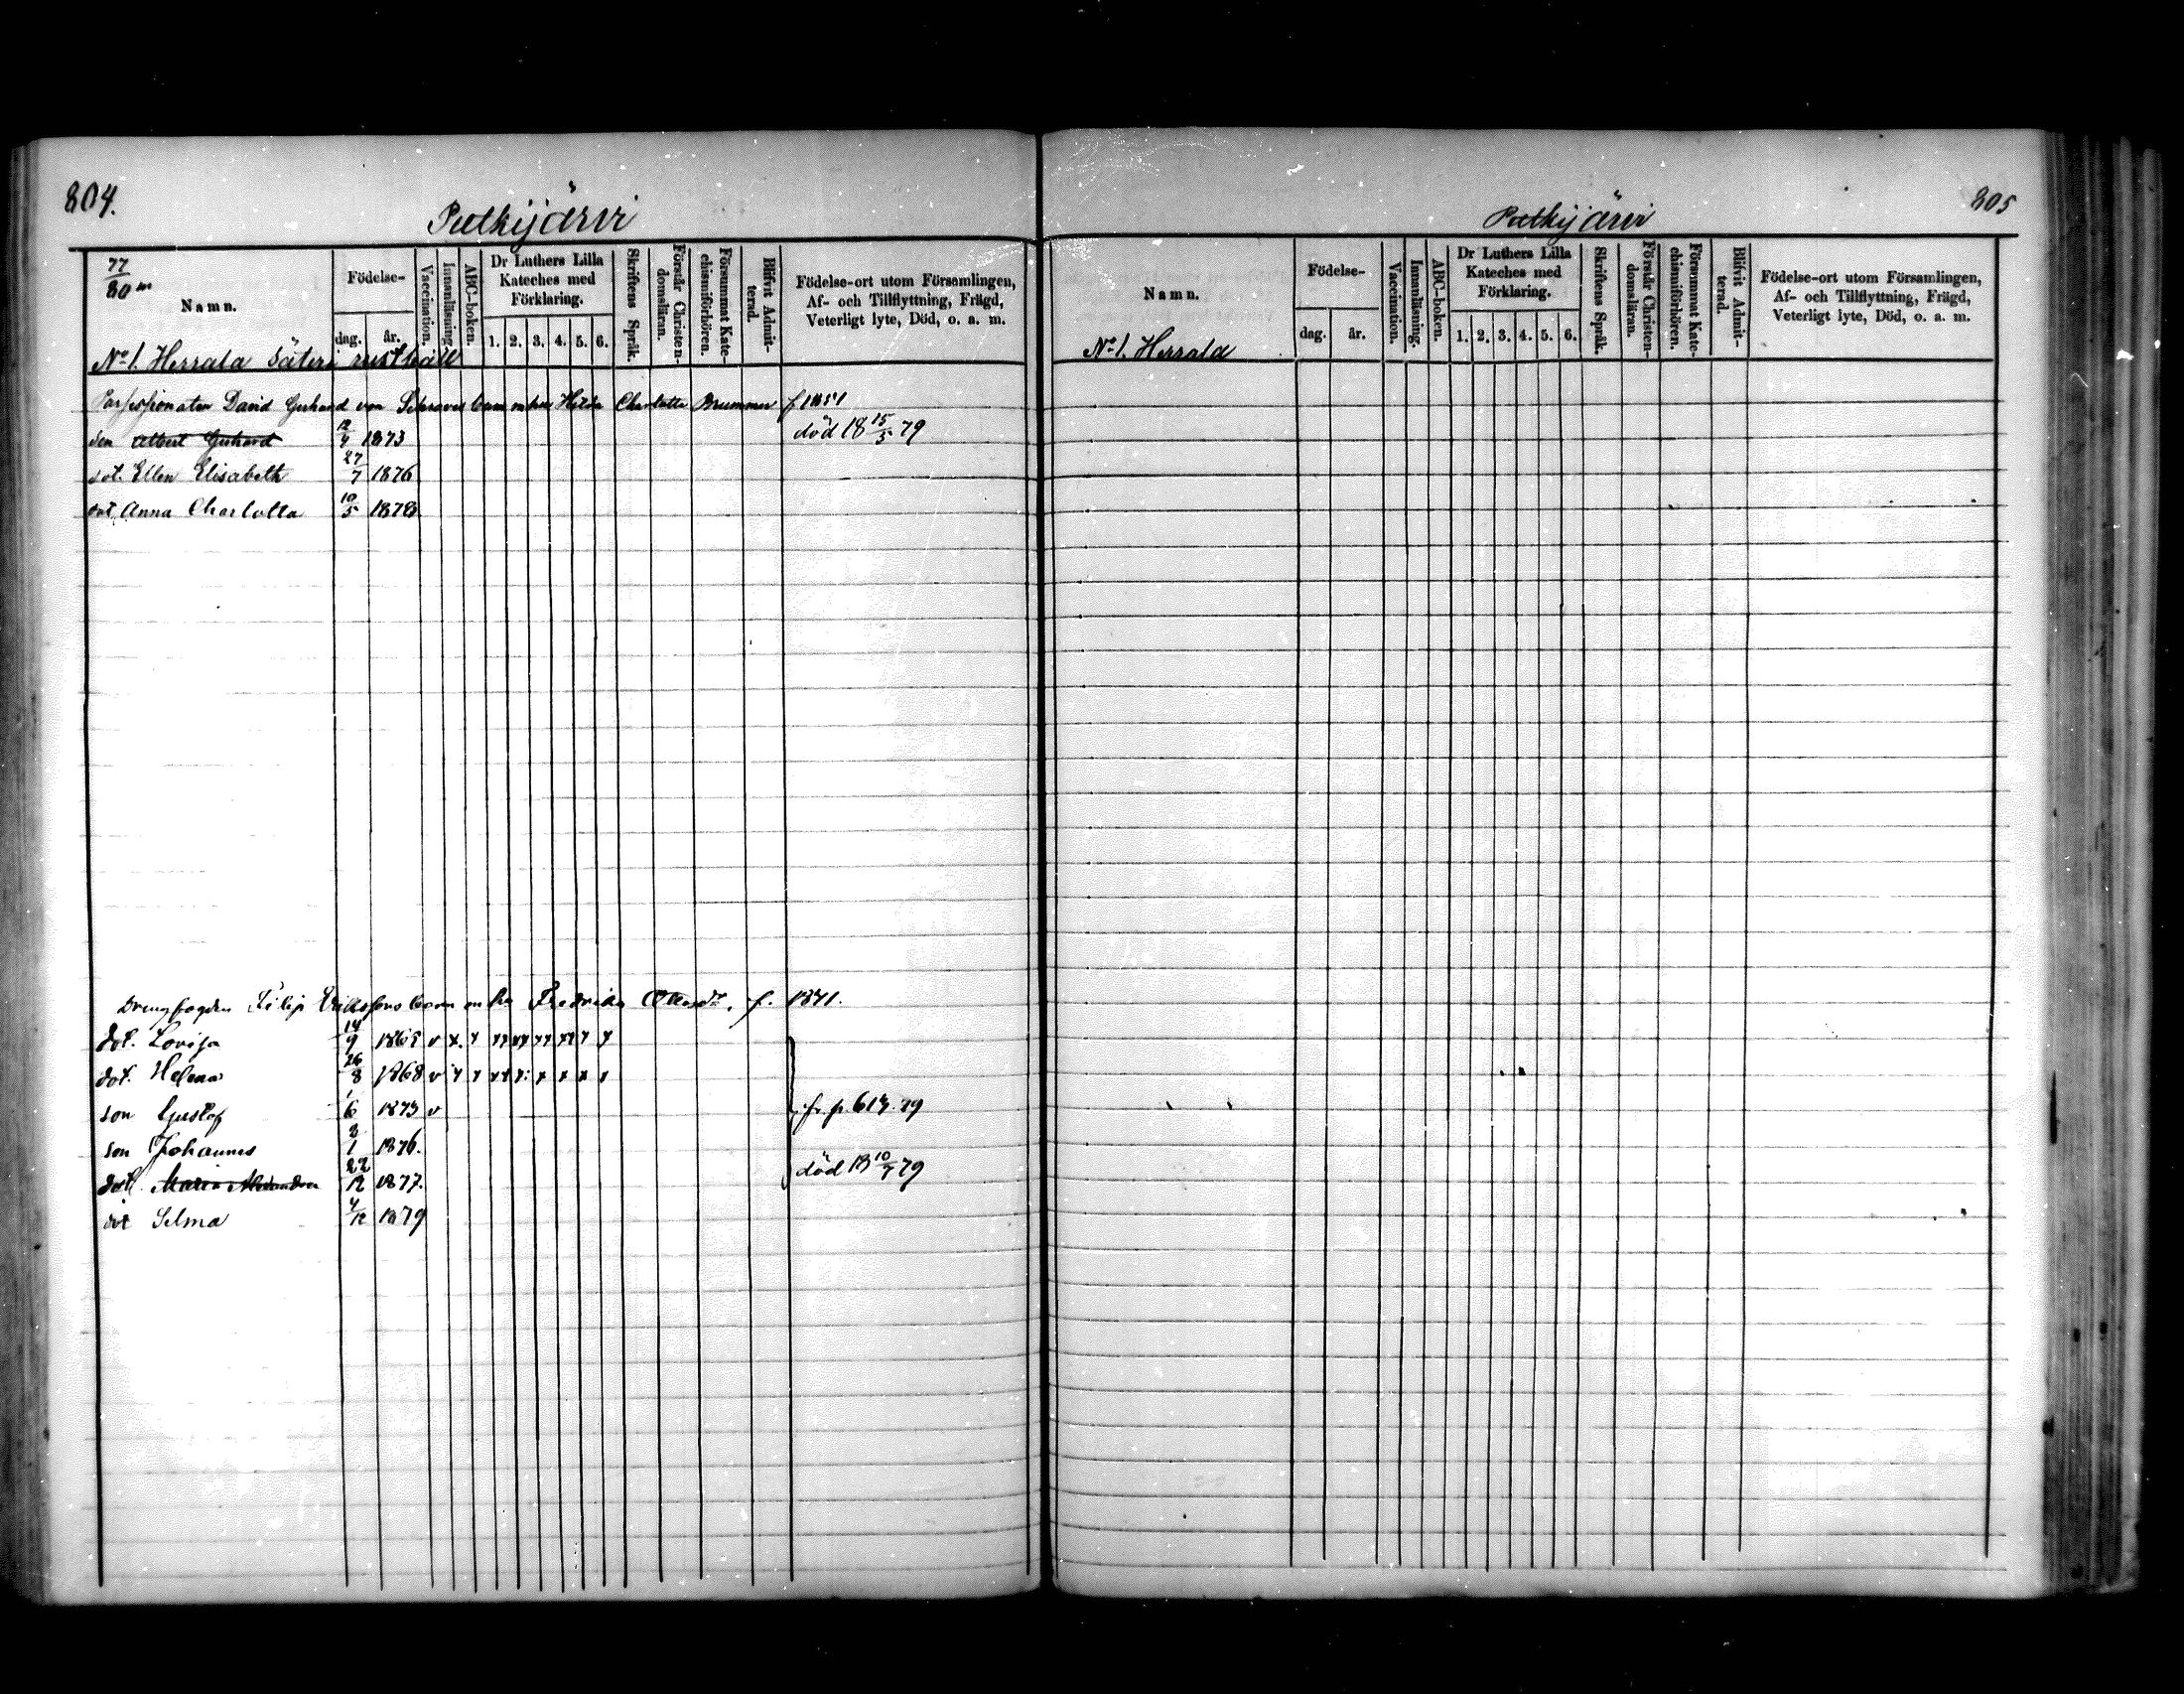 804.
Putkijärvi
77/80
Namn.
Födelse-
dag.
år.
Vaccination.
Innanläsning.
ABC-boken.
Dr Luthers Lilla
Kateches med
Förklaring.
1. 2. 3. 4. 5. 6.
Skriftens Språk.
Förstår Christen-
domsläran.
Försummat Kate-
chismiförhören.
Blifvit Admit-
terad.
Födelse-ort utom Församlingen,
Af- och Tillflyttning, Frägd,
Veterligt lyte, Död, o. a. m.
No 1. Herrala Säteri rusthåll
David Gerhard von barn Hilda Charlotta Brummer f 1851
Albert Gerhard 12/4 1873 död 18 15/5 79
dot. Ellen Elisabeth 27/7 1876
dot Anna Charlotta 10/5 1878
Drengfogden Filip Erikssons barn Fredrika f. 1841.
dot. Lovisa 14/9 1865 v
dot. Helena 26/8 1868 v
son Gustaf 1/6 1873 v fr p 613. 79
son Johannes 3/1 1876.
dot. Maria Alexandra 22/12 1877. död 18 10/7 79
dot Selma 4/12 1879
805
Putkijärvi
Namn.
Födelse-
dag.
år.
Vaccination.
Innanläsning.
ABC-boken.
Dr Luthers Lilla
Kateches med
Förklaring.
1. 2. 3. 4. 5. 6.
Skriftens Språk.
Förstår Christen-
domsläran.
Försummat Kate-
chismiförhören.
Blifvit Admit-
terad.
Födelse-ort utom Församlingen,
Af- och Tillflyttning, Frägd,
Veterligt lyte, Död, o. a. m.
No 1. Herrala